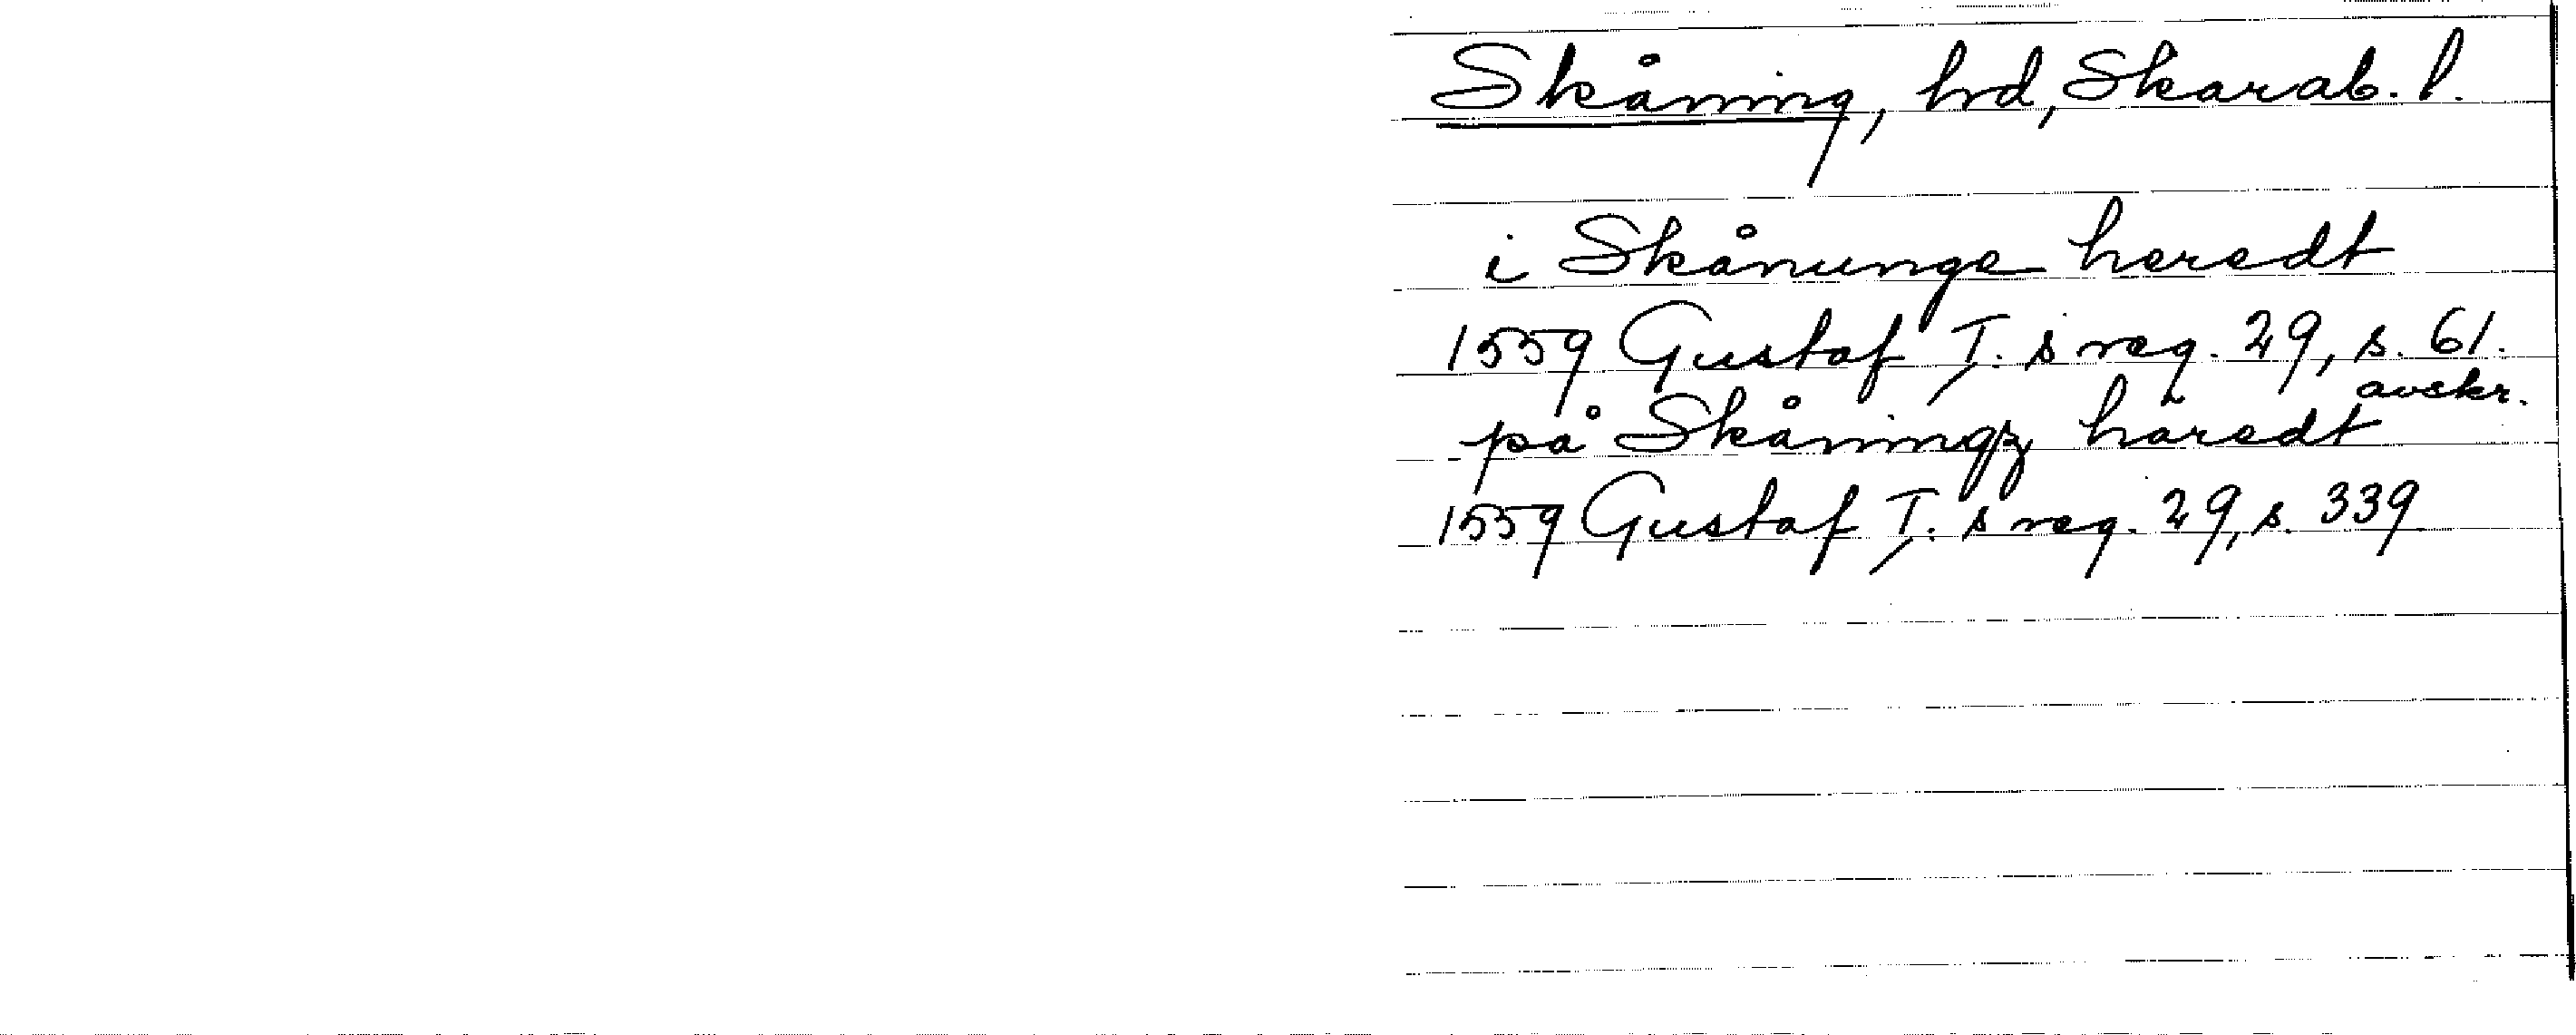 Skåning, hrd, Skarab. l.
i Skånunge heredt
1559 Gustaf I. s reg. 29, s. 61.
avskr.
på Skåningz häredt
1559 Gustaf I. s reg. 29, s. 339